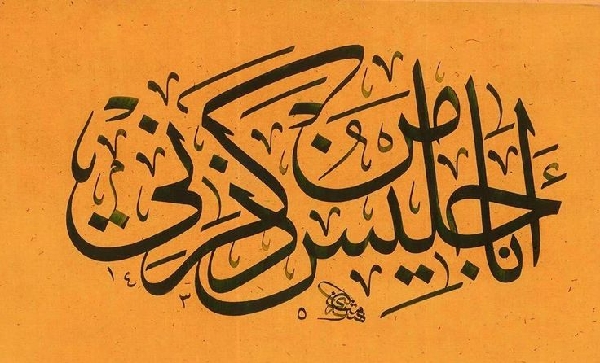 أنا جليس من ذكرني
١٤٣٥